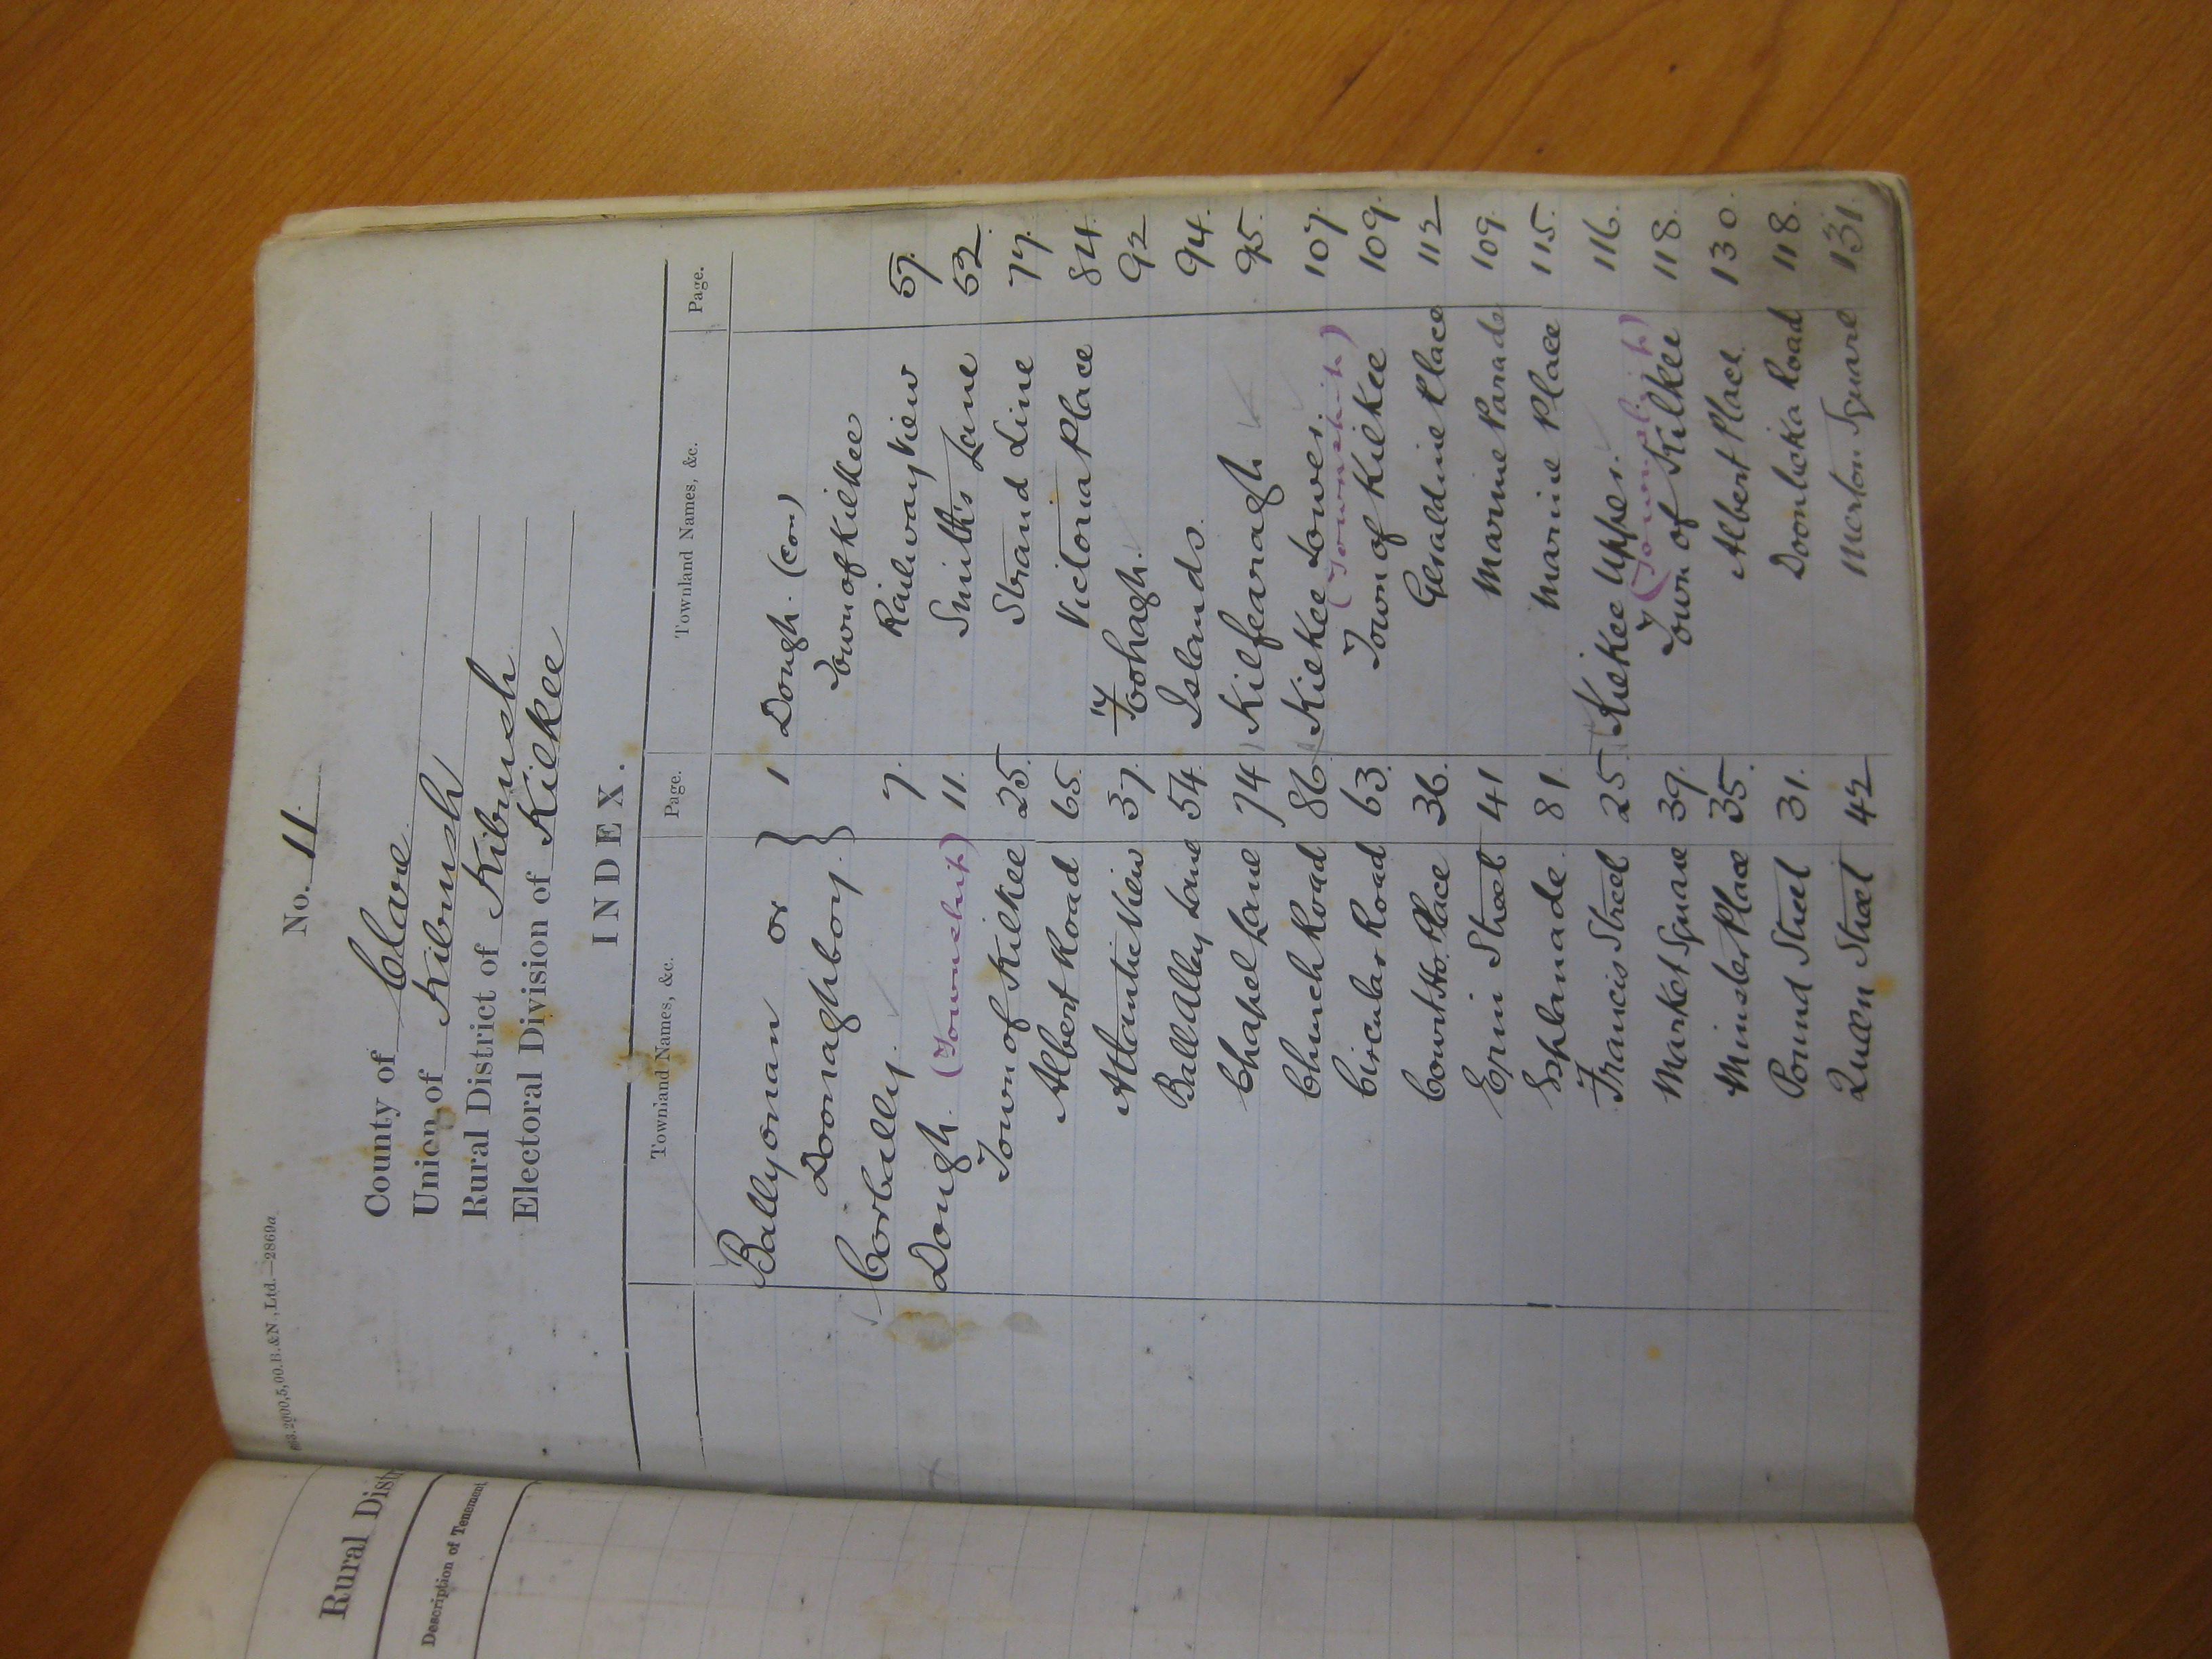 Rural Dist
Description of Tenement
463.2900,5,00.B.&N.,Ltd.—2869a
No. 11.
County of Clare.
Union of Kilrush
Rural District of Kilrush
Electoral Division of Kilkee
INDEX.
Townland Names, &c. Page. Townland Names, &c. Page.
Ballyonan or } 1 Dough. (con)
Doonaghboy. } Town of Kilkee
Corbally. 7. Railway View 57.
Dough. (Township) 11. Smith's Lane 52.
Town of Kilkee 25. Strand Line 77.
Albert Road 65. Victoria Place 84.
Atlantic View 37. Foohagh. 92
Ball Alley Lane 54. Islands. 94.
Chapel Lane 74 Kilfearagh 95.
Church Road 86. Kilkee Lower. 107.
(Township)
Circular Road 63. Town of Kilkee 109.
Court Ho. Place 36. Geraldine Place 112
Erin Street 41 Marine Parade 109.
Esplanade. 81. Marine Place 115.
Francis Street 25. Kilkee Upper. 116.
(Township)
Market Square 39. Town of Kilkee 118.
Minster Place 35. Albert Place. 130.
Pound Street 31. Doonlicka Road 118.
Queen Street 42 Merton Square 131.